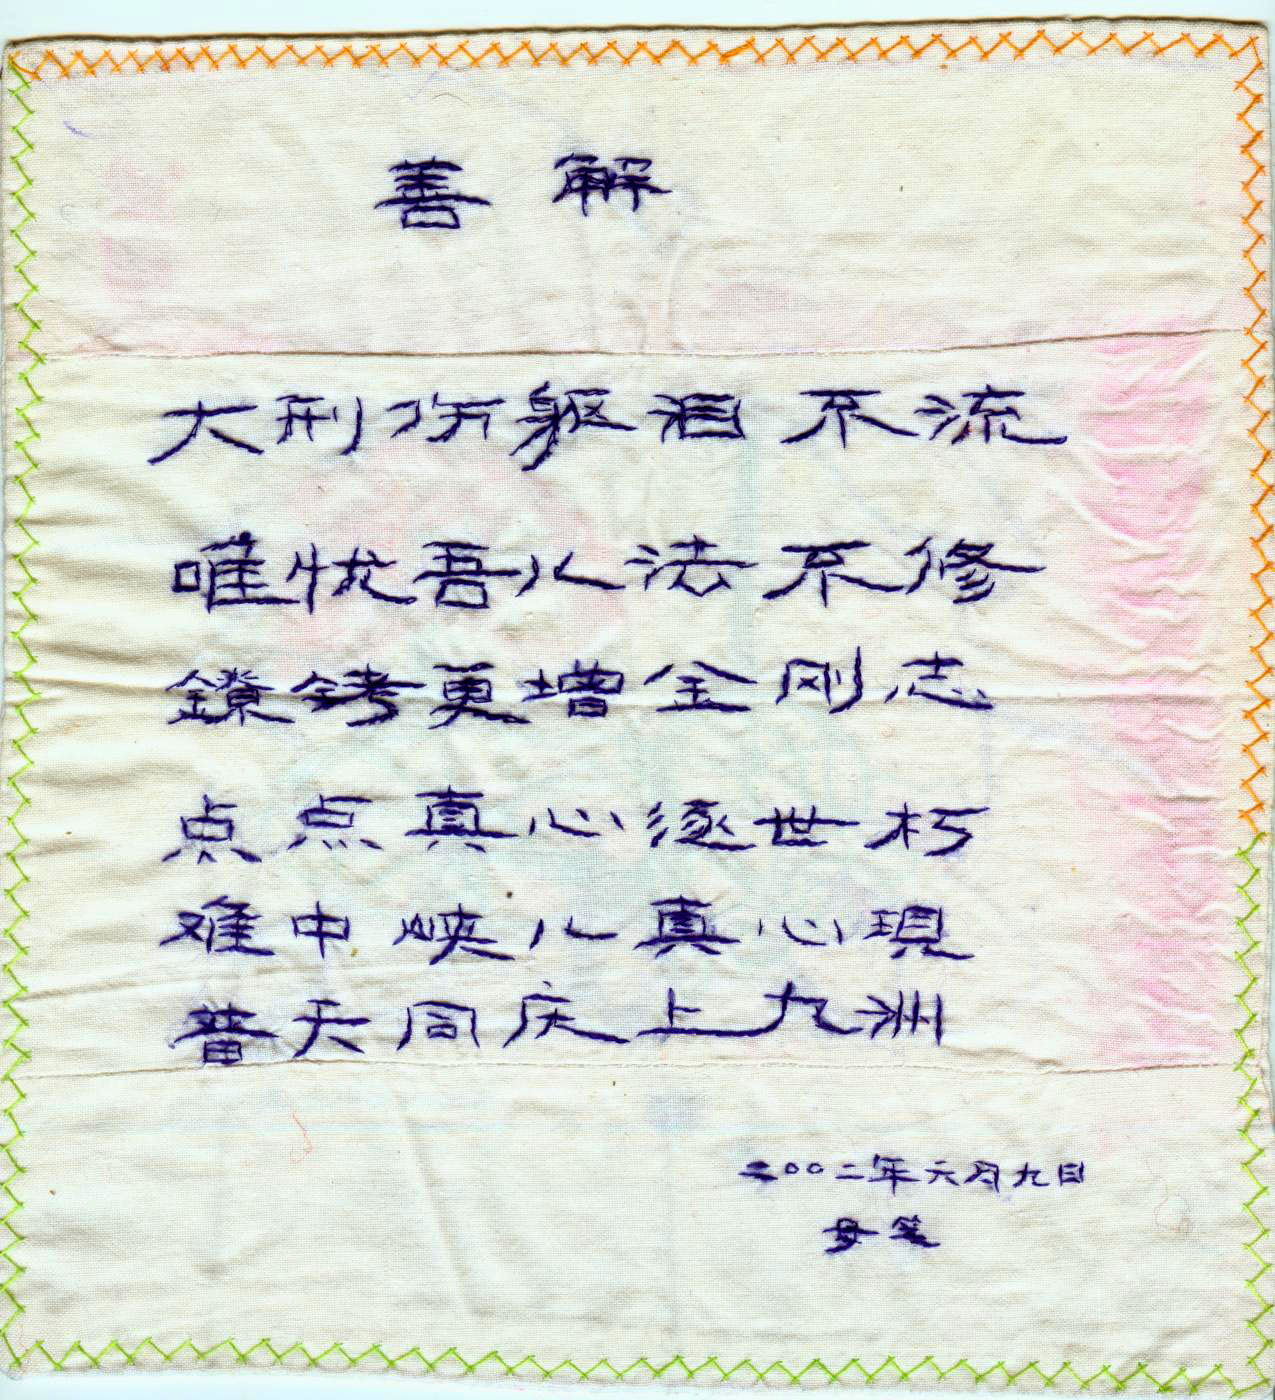 善解
大刑伤躯泪不流
唯忧吾儿法不修
鐐銬更增金刚志
点点真心逐世朽
难中峡儿真心現
普天同庆上九洲
二〇〇二年六月九日
母笔